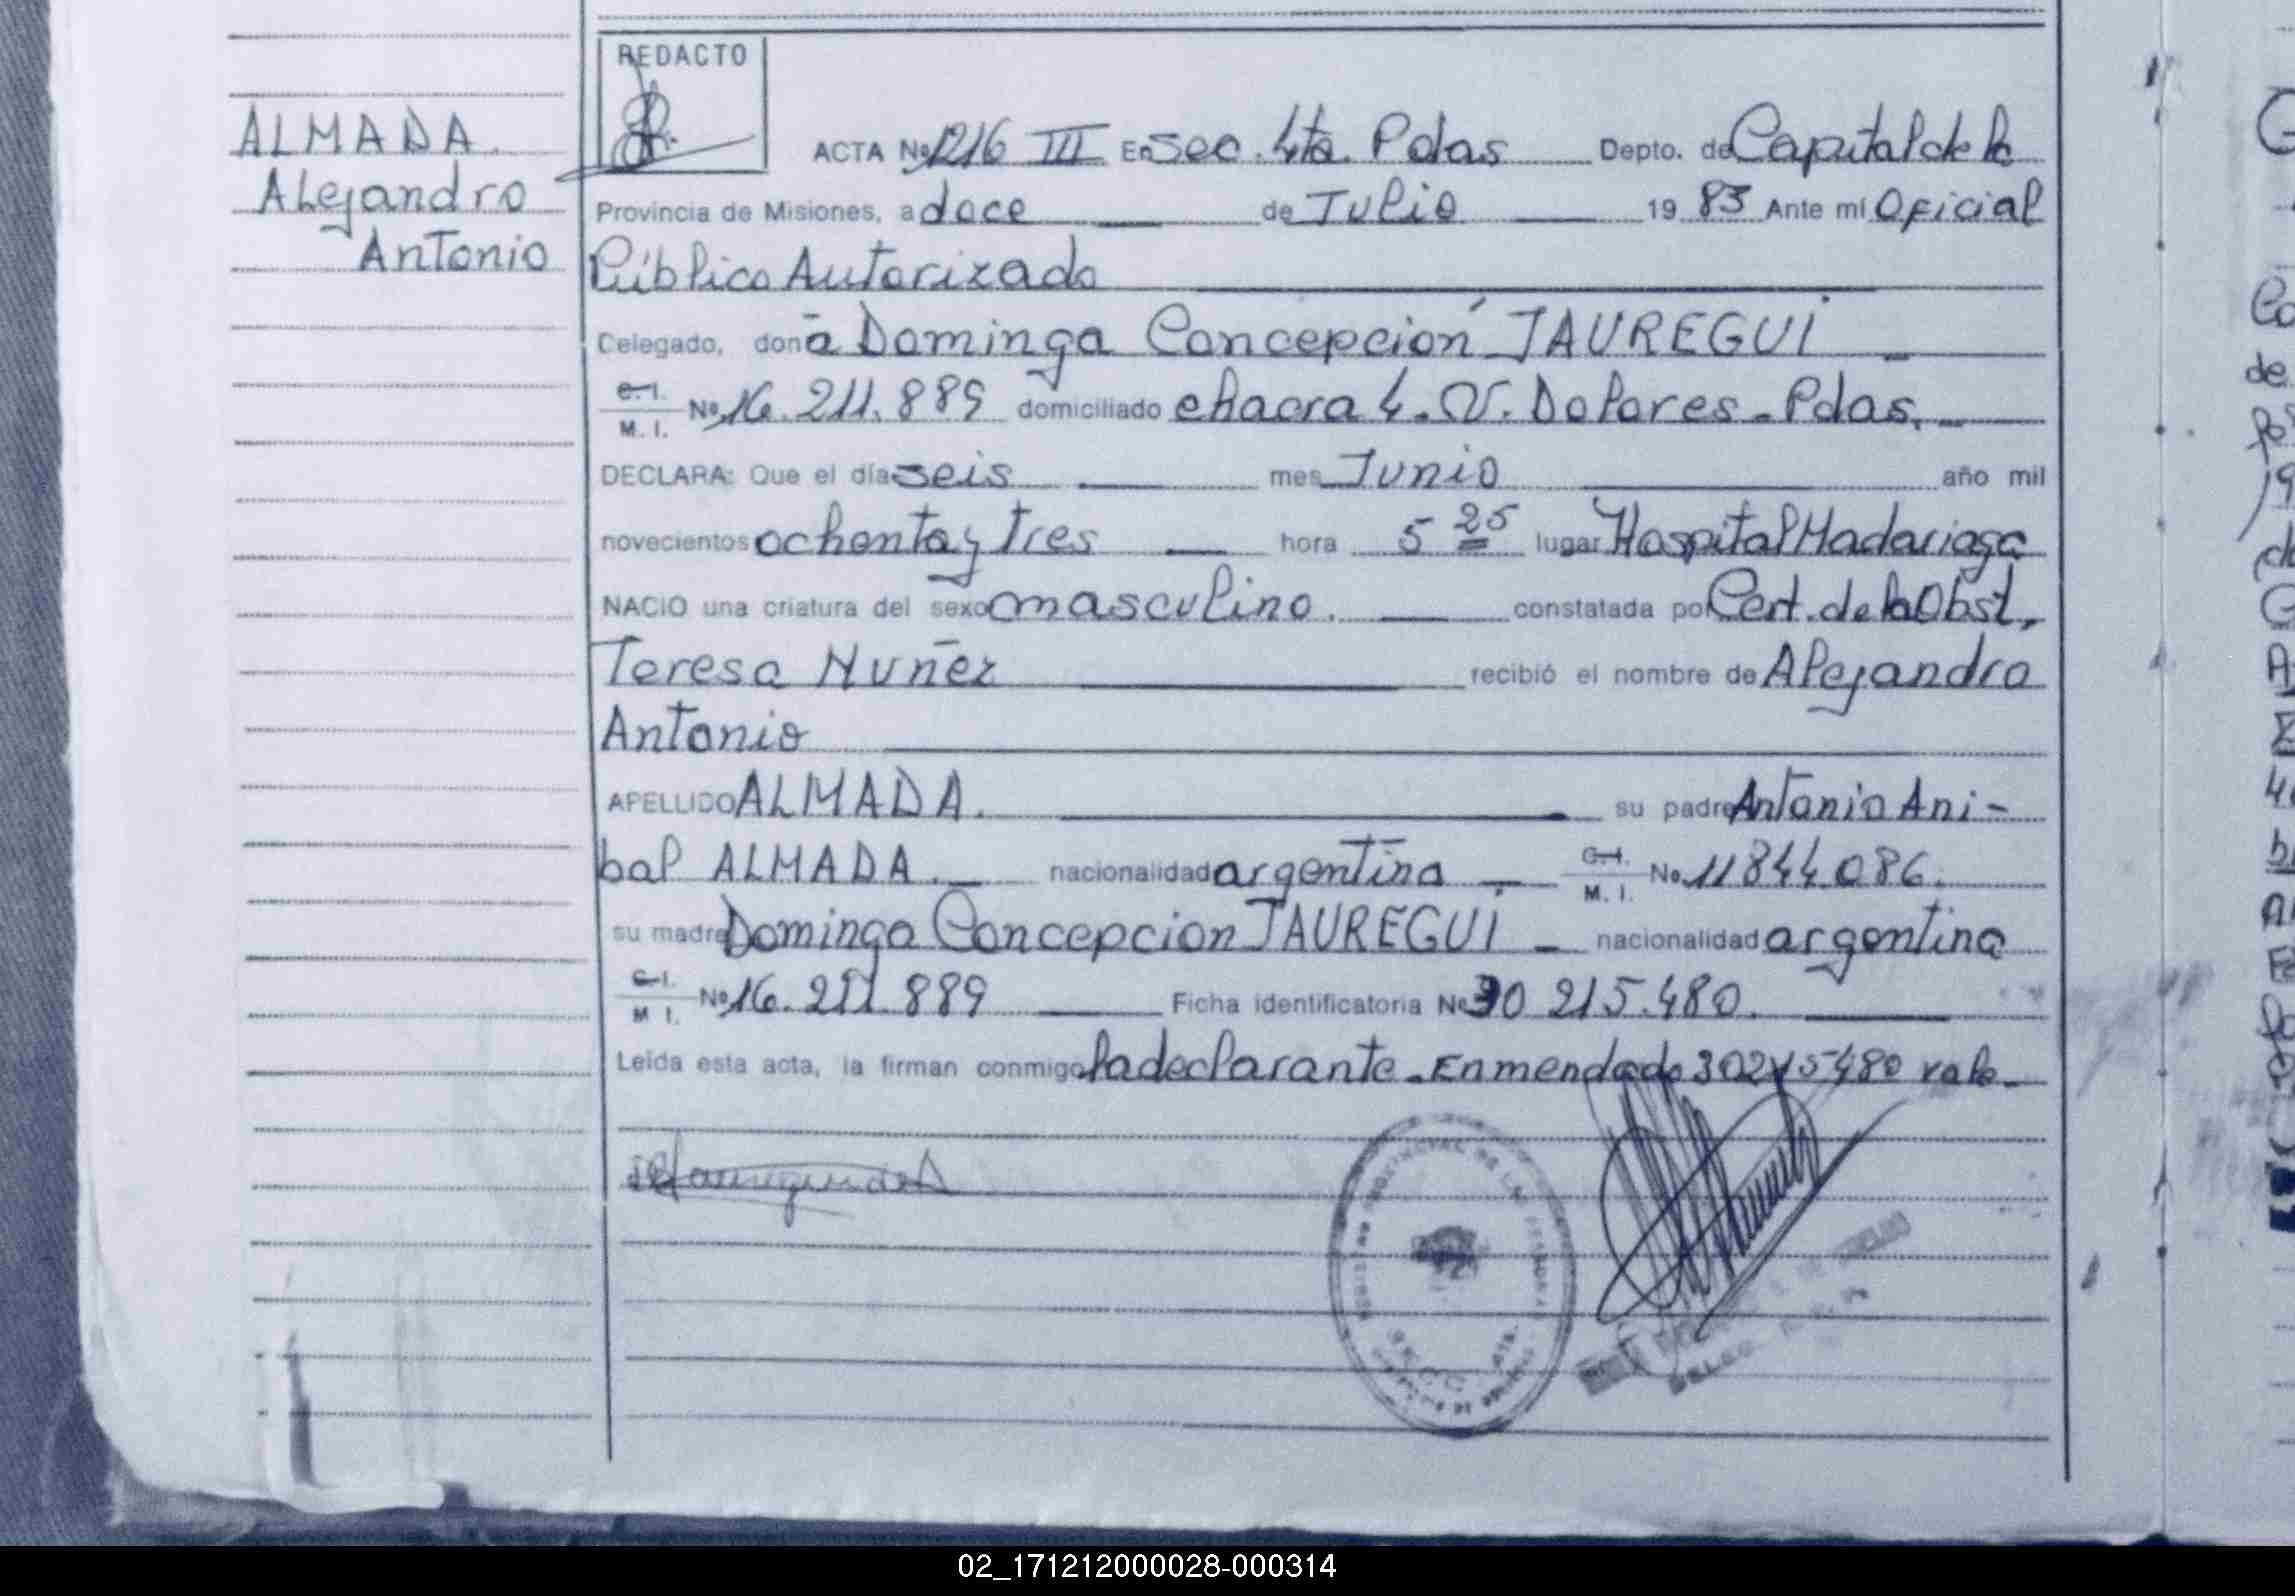 ALMADA.
Alejandro
Antonio
REDACTO
ACTA No 1216 III En Sec. 4ta. Pdas Depto. de Capital de la
Provincia de Misiones, a doce de Julio 19 83 Ante mí Oficial
Público Autorizado
Delegado, doña Dominga Concepción JAUREGUI
C. I.
M. I. No 16.211.889 domiciliado chacra 4. V. Dolores - Pdas.
DECLARA: Que el día seis mes Junio año mil
novecientos ochenta y tres hora 5 25 lugar Hospital Madariaga
NACIO una criatura del sexo masculino. constatada por Cert. de la Obst.
Teresa Nuñez recibió el nombre de Alejandro
Antonio
APELLIDO ALMADA. su padre Antonio Ani-
bal ALMADA. nacionalidad argentina C. I. M. I. No 11844.086.
su madre Dominga Concepcion JAUREGUI nacionalidad argentina
C. I.
M. I. No 16.211.889 Ficha identificatoria No 30 215.480.
Leída esta acta, la firman conmigo la declarante. Enmendado 30215480 vale
02_171212000028-000314